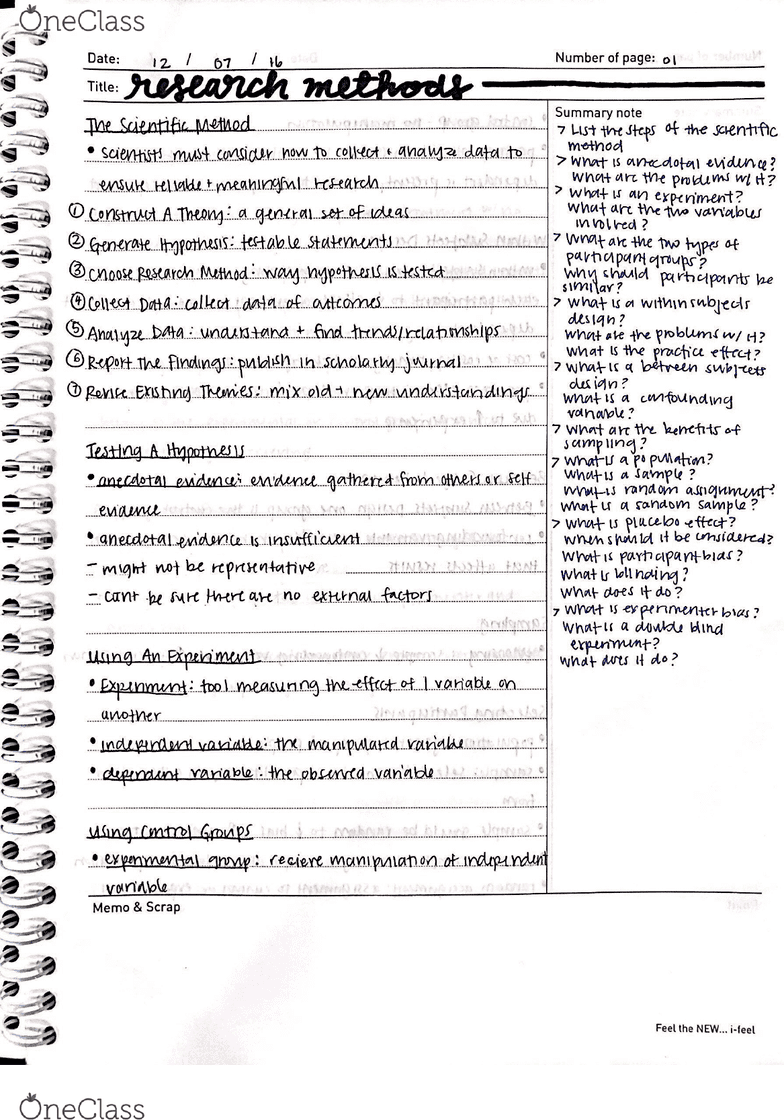 OneClass
Date: 12 / 07 / 16
Number of page: 01
Title: research methods
The Scientific Method
• scientists must consider how to collect + analyze data to
ensure reliable + meaningful research
① Construct A Theory: a general set of ideas
② Generate Hypothesis: testable statements
③ Choose Research Method: way hypothesis is tested
④ Collect Data: collect data of outcomes
⑤ Analyze Data: understand + find trends/relationships
⑥ Report the Findings: publish in scholarly journal
⑦ Revise Existing Theories: mix old + new understandings
Testing A Hypothesis
• anecdotal evidence: evidence gathered from others or self
evidence
• anecdotal evidence is insufficient
- might not be representative
- cant be sure there are no external factors
Using An Experiment
• Experiment: tool measuring the effect of 1 variable on
another
• independent variable: the manipulated variable
• dependent variable: the observed variable
Using Control Groups
• experimental group: recieve manipulation of independent
variable
Summary note
> List the steps of the scientific
method
> What is anecdotal evidence?
What are the problems w/ it?
> What is an experiment?
What are the two variables
involved?
> What are the two types of
participant groups?
Why should participants be
similar?
> What is a within subjects
design?
What are the problems w/ it?
What is the practice effect?
> What is a between subjects
design?
What is a confounding
variable?
> What are the benefits of
sampling?
> What is a population?
What is a sample?
What is random assignment?
What is a random sample?
> What is placebo effect?
When should it be considered?
What is participant bias?
What is blinding?
What does it do?
> What is experimenter bias?
What is a double blind
experiment?
What does it do?
Memo & Scrap
Feel the NEW... i-feel
OneClass